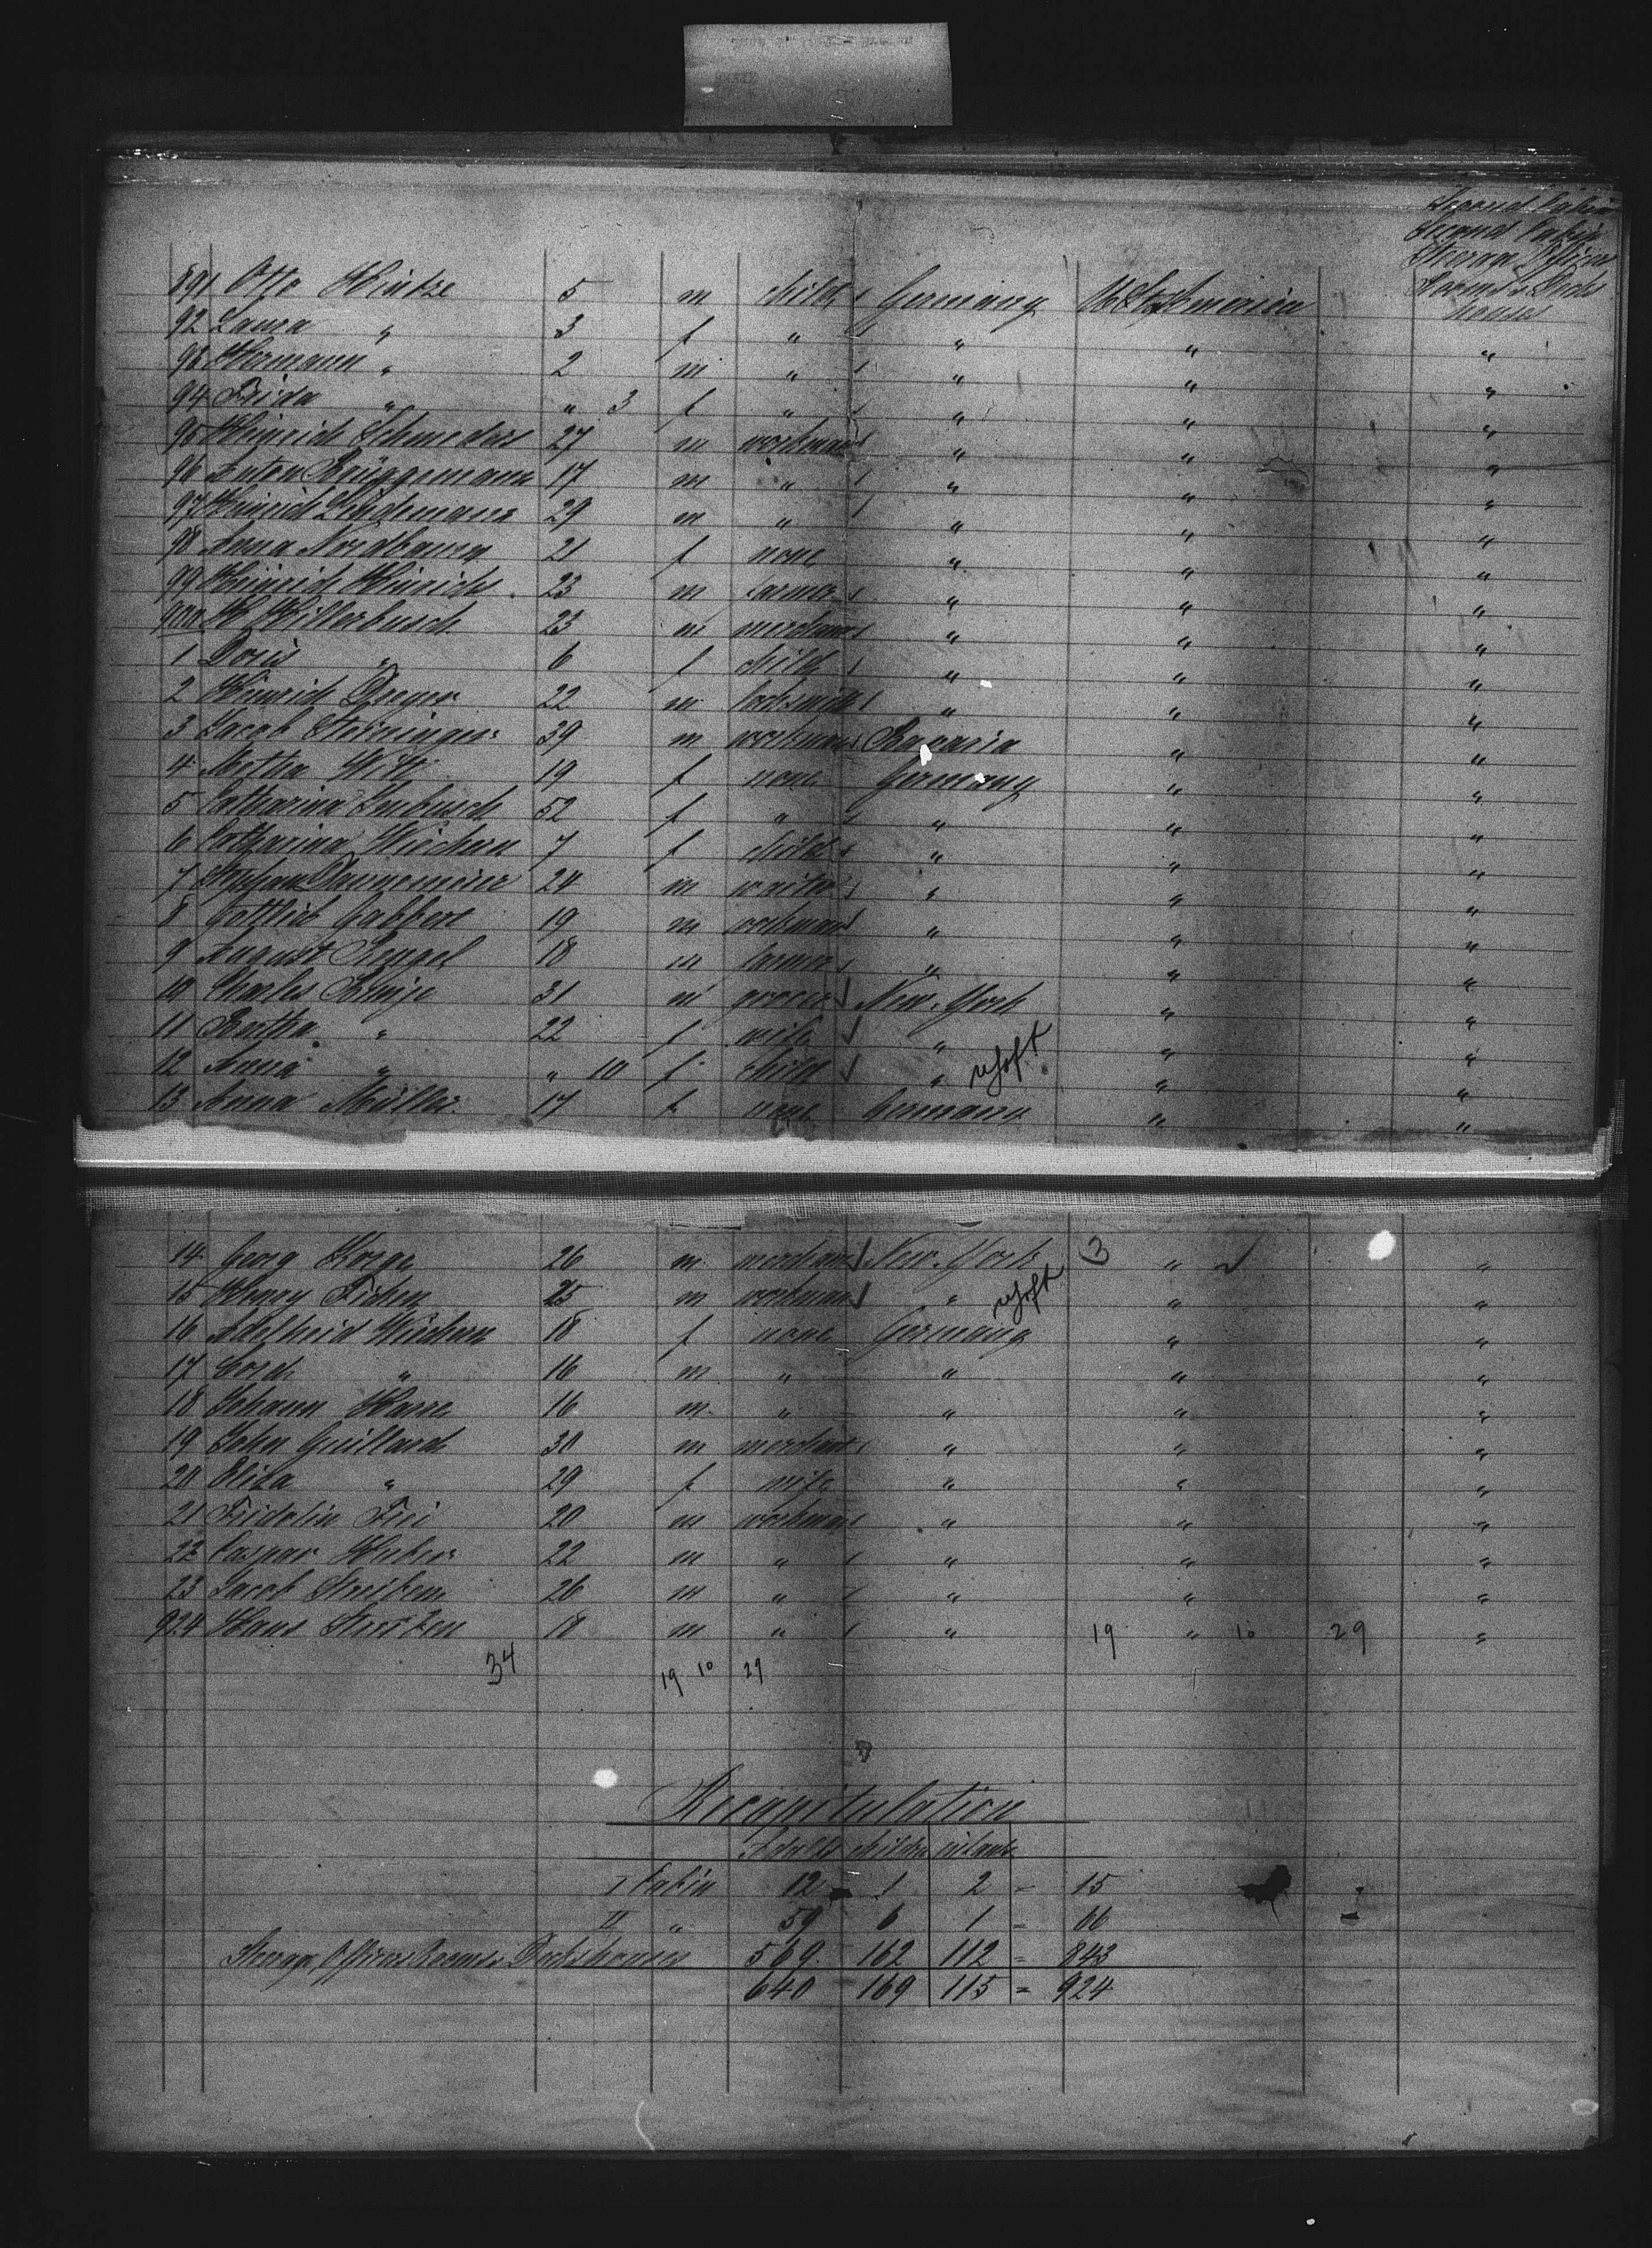 Second Cabin
Second Cabin
Steerage Officers
Rooms & Deck
houses
891 Otto Hintze 5 m child Germany U. St. America
92 Laura " 3 f " " " "
93 Hermann " 2 m " " " "
94 Frida " " 3 f " " " "
95 Heinrich Schmeders 27 m workman " " "
96 Anton Brüggemann 17 m " " " "
97 Heinrich Lindemann 29 m " " " "
98 Anna Nordbaum 21 f none " " "
99 Heinrich Hinrichs 23 m farmer " " "
900 H. Hillerbusch 23 m merchant " " "
1 Doris " 6 f child " " "
2 Hinrich Dreyer 22 m locksmith " " "
3 Jacob 39 m workman Bavaria " "
4 Metha Witt 19 f none Germany " "
5 Catharina 52 f " " " "
6 Catharina Wiechern 7 f child " " "
7 Stephan Dannemeier 24 m waiter " " "
8 Gottlieb Gabbert 19 m workman " " "
9 August Rengel 18 m farmer " " "
10 Charles 31 m grocer New-York " "
11 Bertha " 22 f wife " " "
12 Anna " " 10 f child " " "
13 Anna Müller 17 f none Germany " "
14 Georg Korge 26 m merchant New-York 3 " "
15 Henry Ficken 25 m workman " " "
16 Adelheid Wiechern 18 f none Germany " "
17 Cord " 16 m " " " "
18 Johann Harre 16 m " " " "
19 John Guillard 30 m merchant " " "
20 Eliza " 29 f wife " " "
21 Fridolin Frei 20 m workman " " "
22 Caspar Huber 22 m " " " "
23 Jacob 26 m " " " "
924 Hans 18 m " " 19 " 10 29 "
34 19 10 29
Recapitulation
Adults children infants
I Cabin 12 1 2 = 15
II " 59 6 1 = 66
Steerage, Officers Rooms & Deckshouses 569 162 112 = 843
640 169 115 = 924